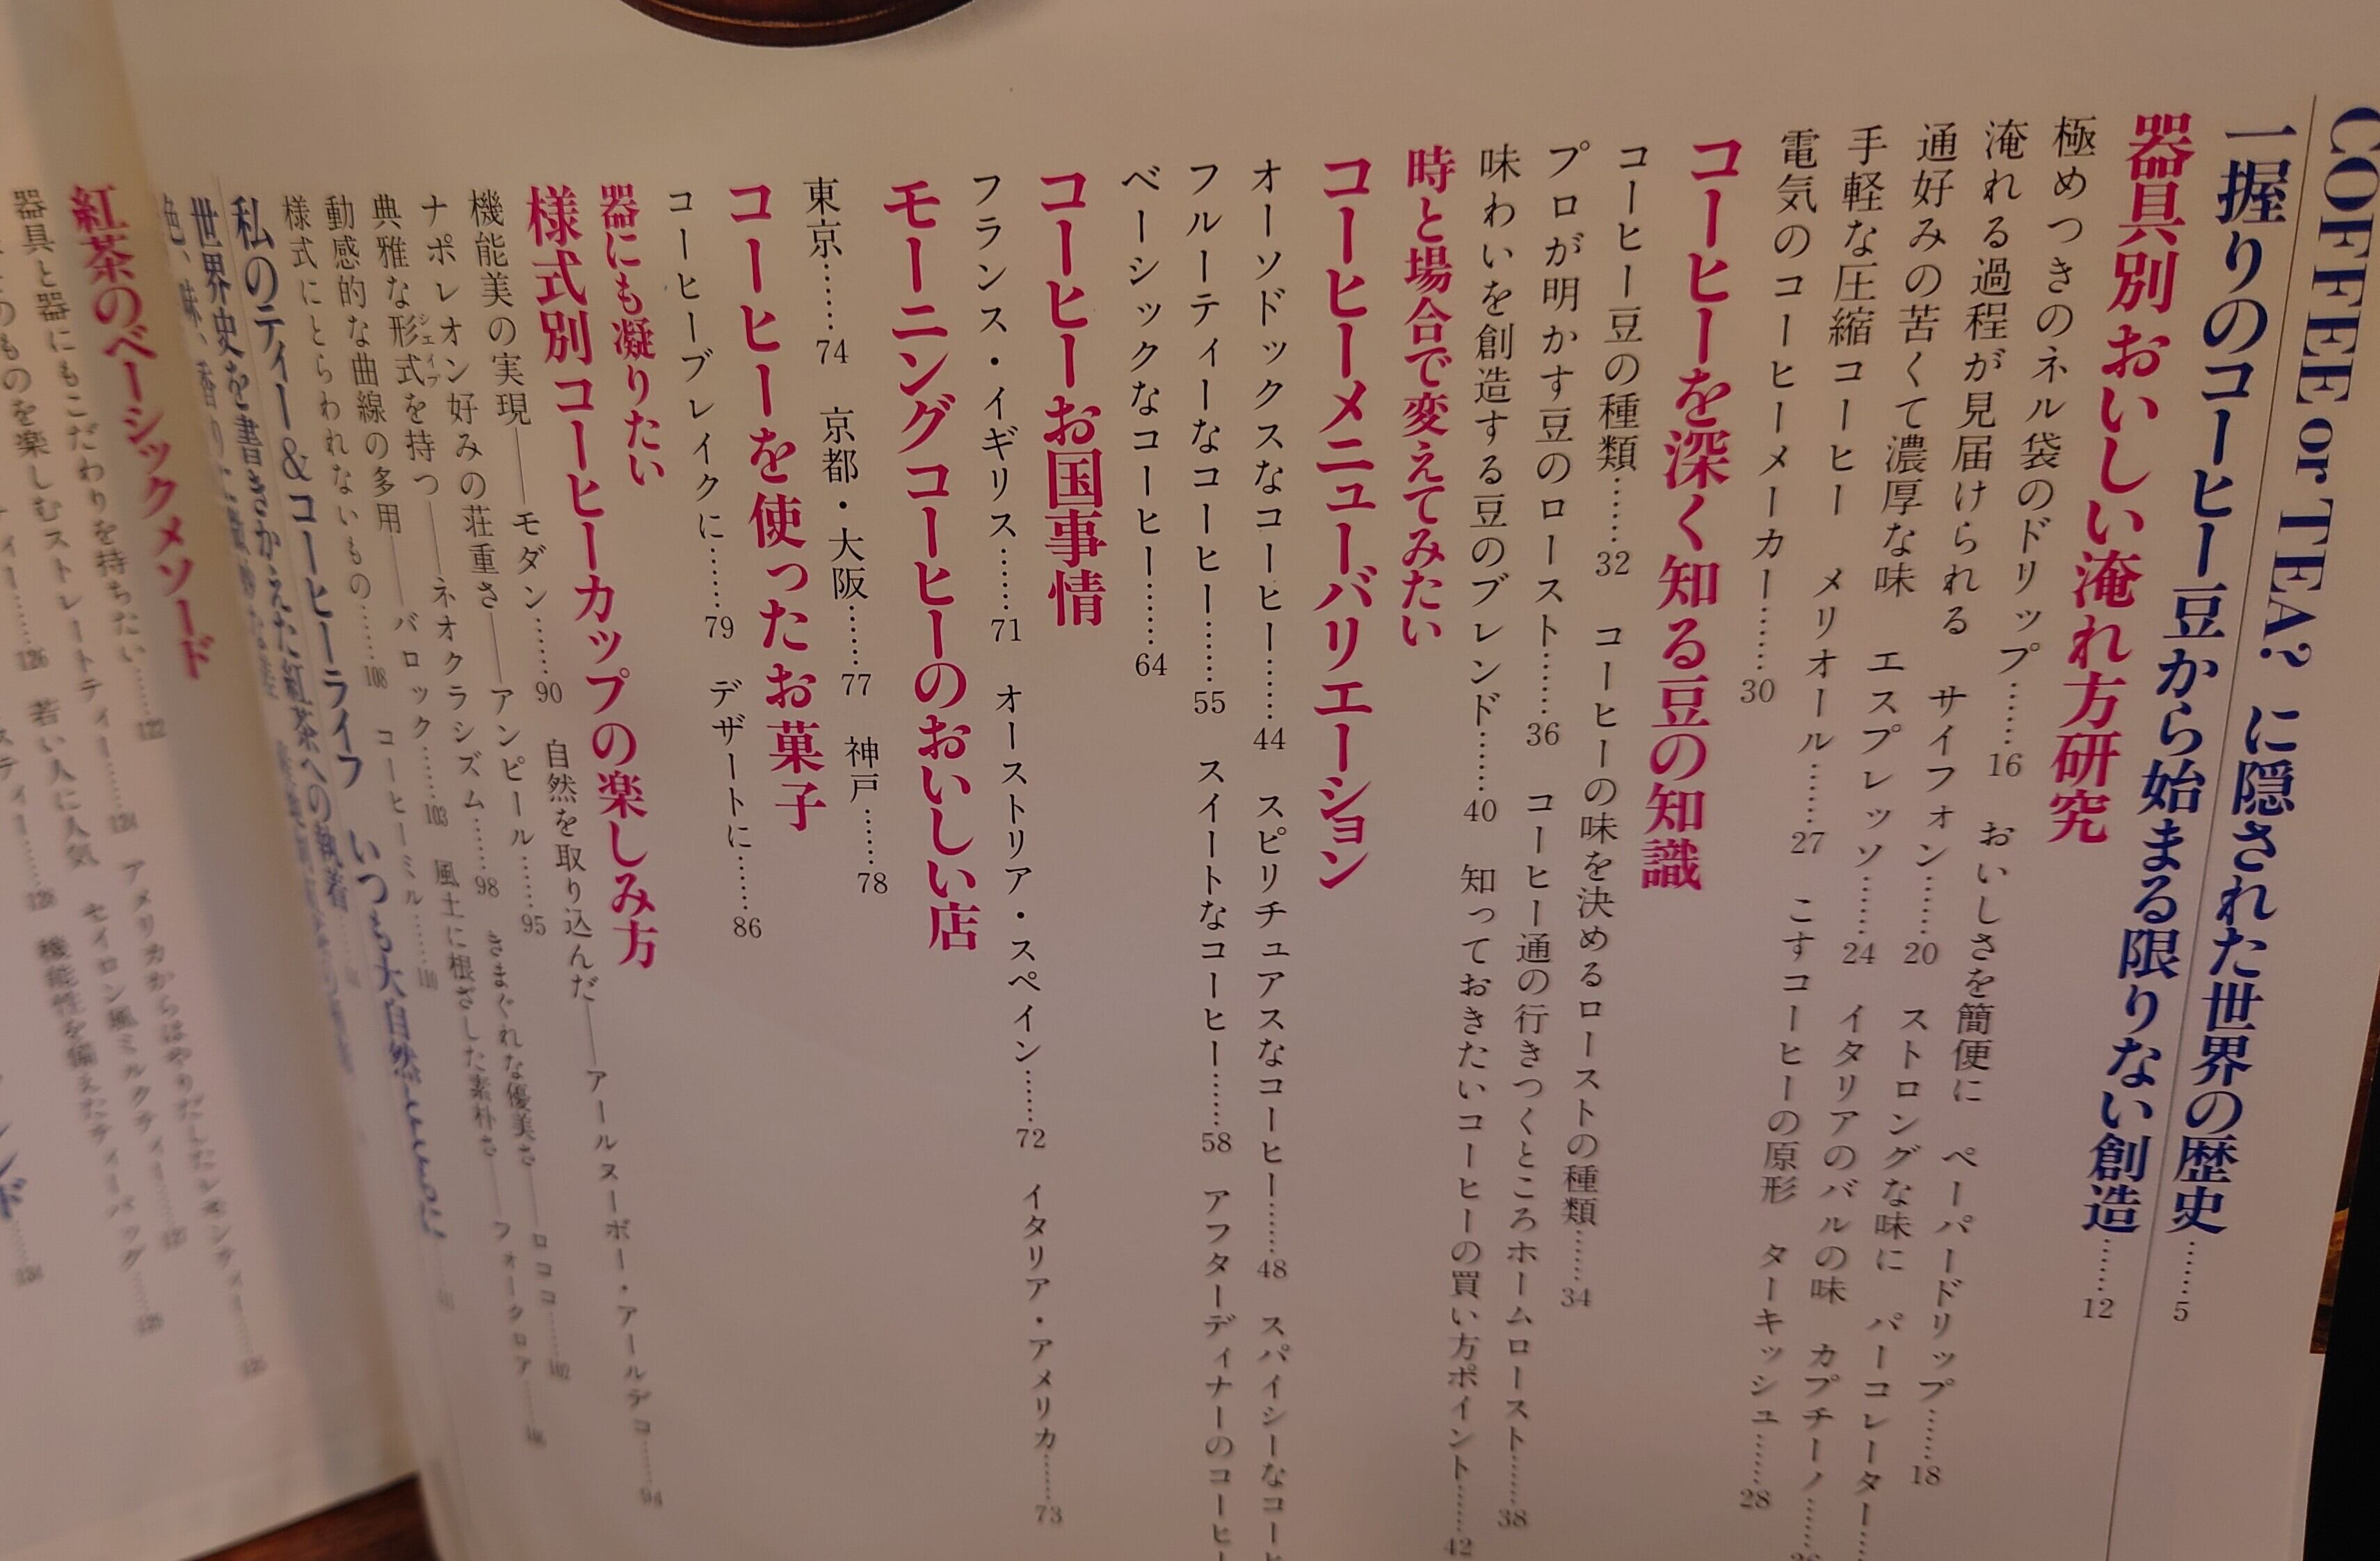 COFFEE or TEA? に隠された世界の歴史……5
一握りのコーヒー豆から始まる限りない創造……12
器具別おいしい淹れ方研究
極めつきのネル袋のドリップ……16 おいしさを簡便に ペーパードリップ……18
淹れる過程が見届けられる サイフォン……20 ストロングな味に パーコレーター…
通好みの苦くて濃厚な味 エスプレッソ……24 イタリアのバルの味 カプチーノ……
手軽な圧縮コーヒー メリオール……27 こすコーヒーの原形 ターキッシュ……28
電気のコーヒーメーカー……30
コーヒーを深く知る豆の知識
コーヒー豆の種類……32 コーヒーの味を決めるローストの種類……34
プロが明かす豆のロースト……36 コーヒー通の行きつくところホームロースト……38
味わいを創造する豆のブレンド……40 知っておきたいコーヒーの買い方ポイント……42
時と場合で変えてみたい
コーヒーメニューバリエーション
オーソドックスなコーヒー……44 スピリチュアスなコーヒー……48 スパイシーなコー
フルーティーなコーヒー……55 スイートなコーヒー……58 アフターディナーのコーヒ
ベーシックなコーヒー……64
コーヒーお国事情
フランス・イギリス……71 オーストリア・スペイン……72 イタリア・アメリカ……73
モーニングコーヒーのおいしい店
東京……74 京都・大阪……77 神戸……78
コーヒーを使ったお菓子
コーヒーブレイクに……79 デザートに……86
器にも凝りたい
様式別コーヒーカップの楽しみ方
機能美の実現――モダン……90 自然を取り込んだ――アールヌーボー・アールデコ……94
ナポレオン好みの荘重さ――アンピール……95 きまぐれな優美さ――ロココ……102
典雅な形式を持つ――ネオクラシズム……98 風土に根ざした素朴さ――フォークロア……
シェイプ
動感的な曲線の多用――バロック……103 コーヒーミル……110
様式にとらわれないもの……108
私のティー&コーヒーライフ いつも大自然とともに
世界史を書きかえた紅茶への執着
色、味、香りに
紅茶のベーシックメソード
器具と器にもこだわりを持ちたい……122 アメリカからはやりだしたレモンティー……125
のものを楽しむストレートティー……124 セイロン風ミルクティー……127
……126 若い人に人気 機能性を備えたティーバッグ……128